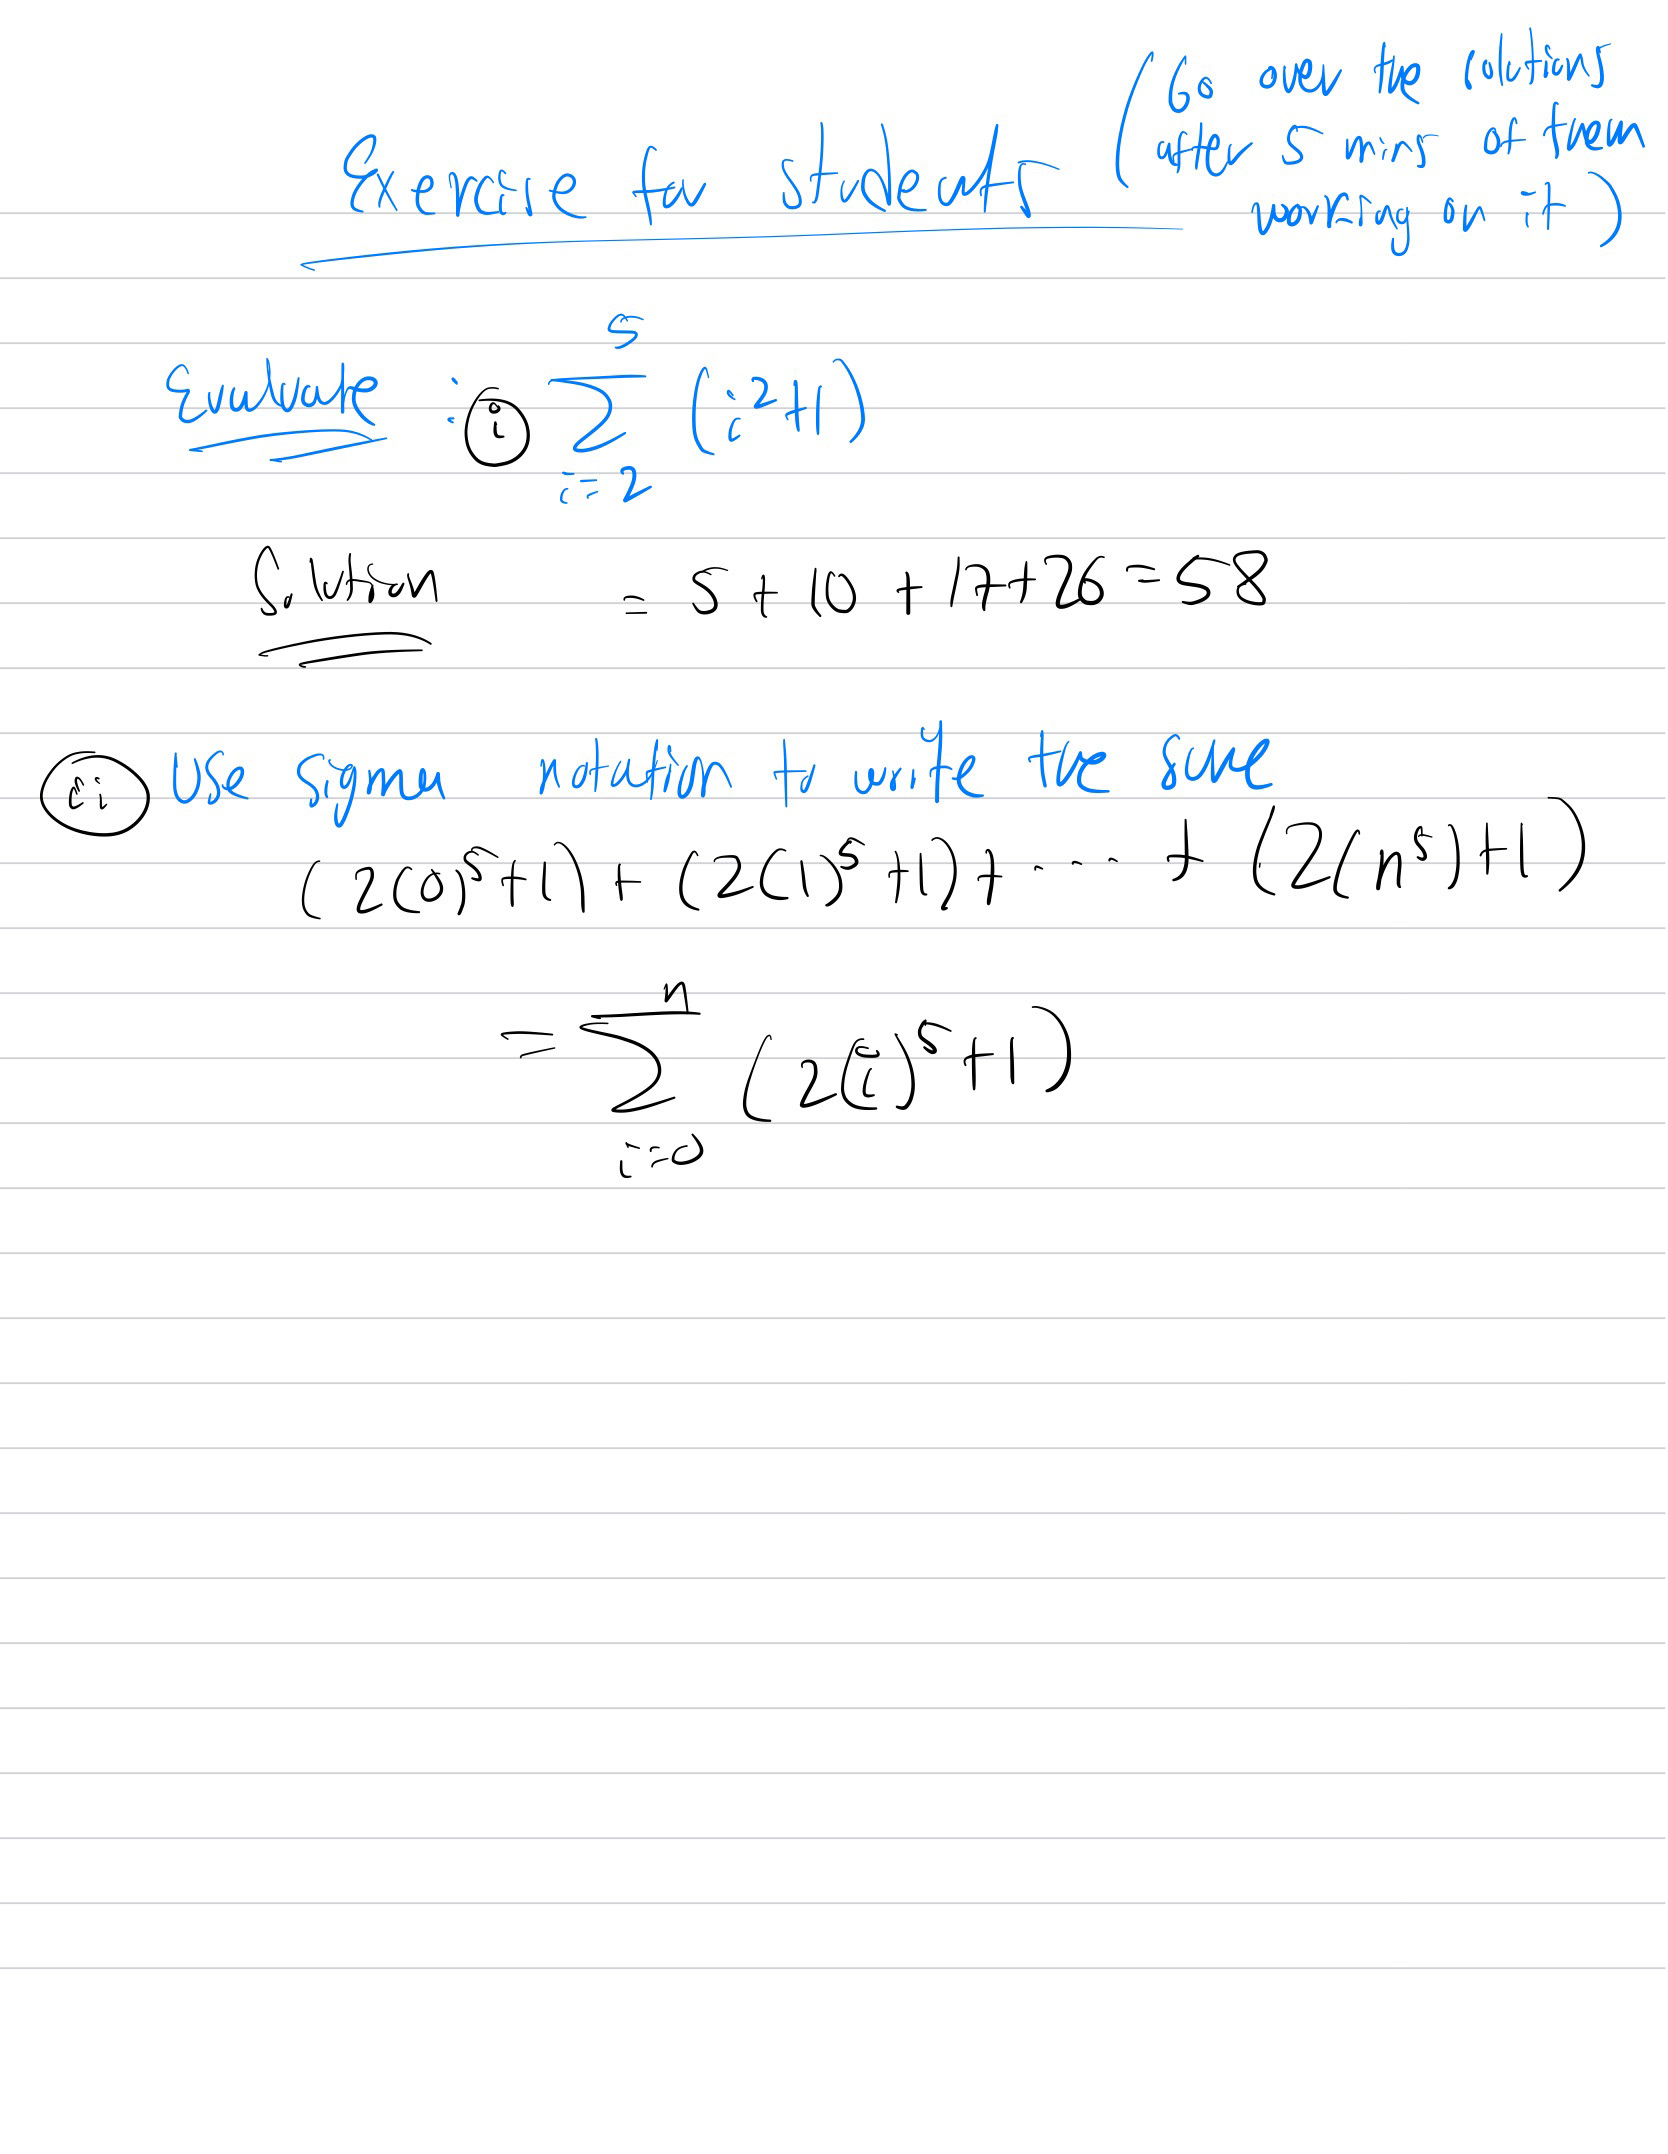 Exercise for students
(Go over the solutions
after 5 mins of them
working on it)
Evaluate : (i) ∑_{i=2}^{5} (i²+1)
Solution = 5 + 10 + 17 + 26 = 58
(ii) Use sigma notation to write the sum
(2(0)⁵+1) + (2(1)⁵+1) + ⋯ + (2(n⁵)+1)
= ∑_{i=0}^{n} (2(i)⁵+1)